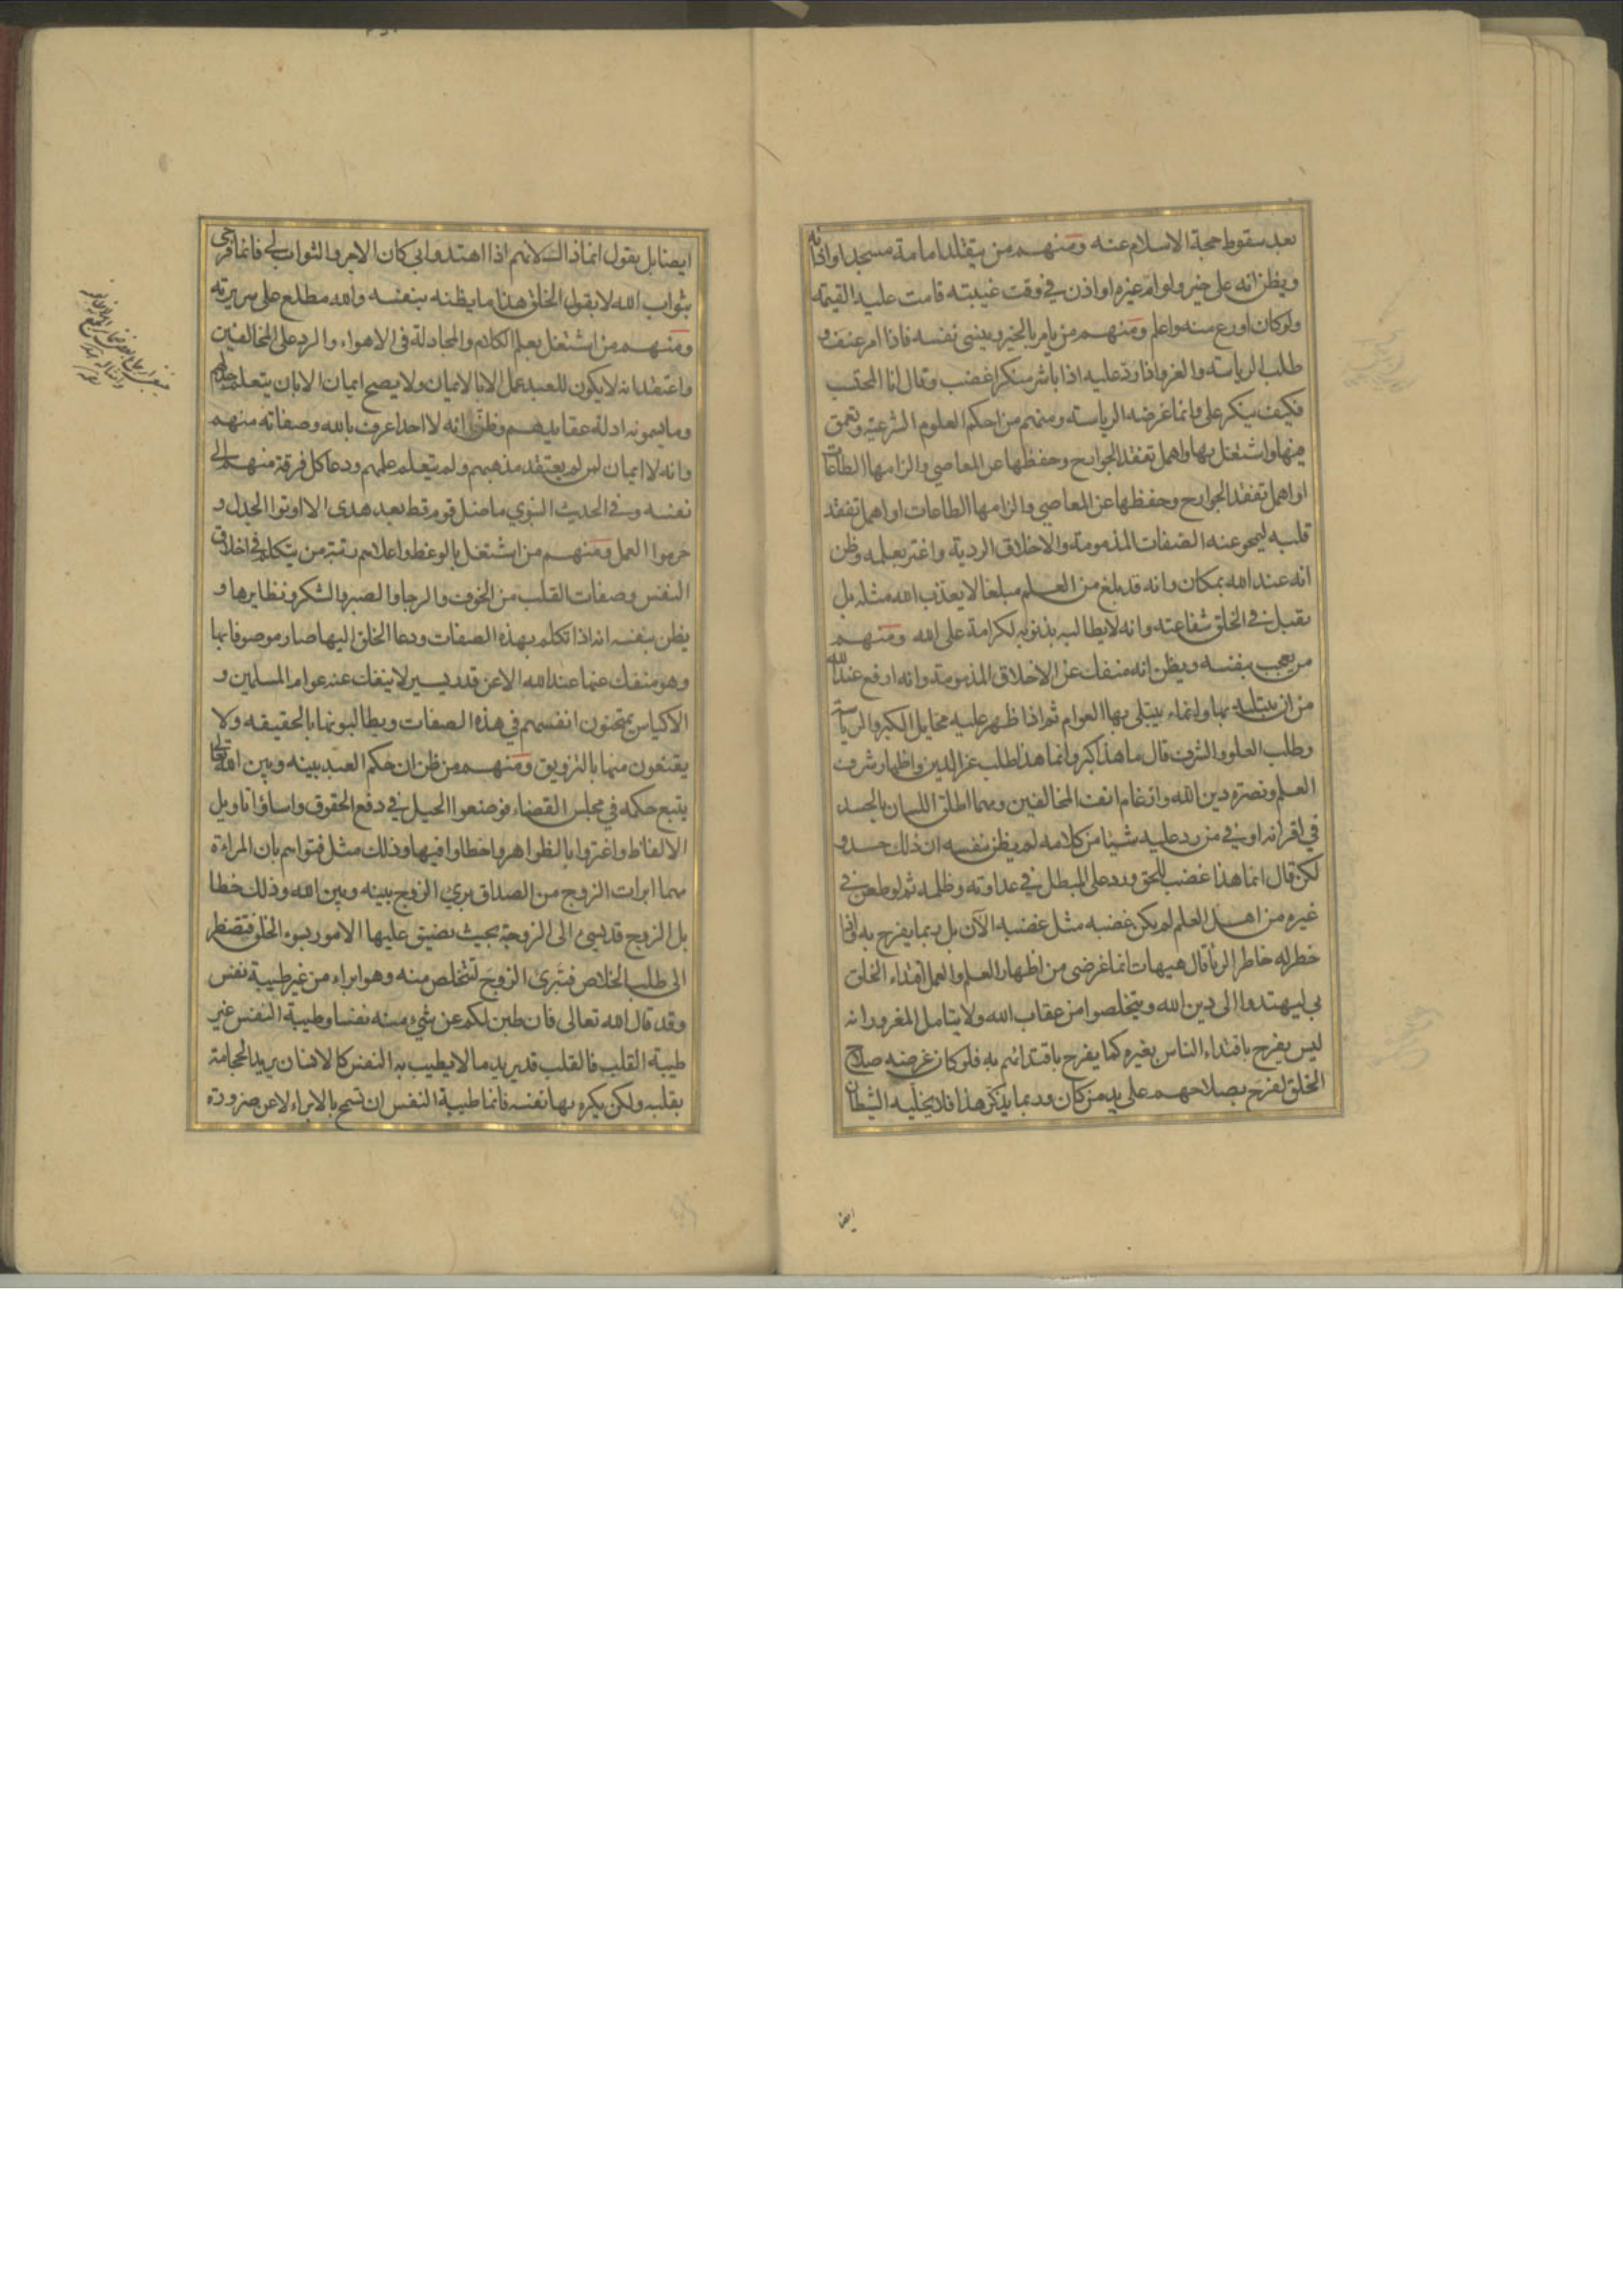 بعد سقوط حجة الاسلام عنه ومنهم من يتقلد امامة مسجد او اذانه
ويظن انه على خير ولو ام غيره او اذن في وقت غيبته قامت عليه القيمة
ولو كان اورع منه واعلم ومنهم من يامر بالخير وينسى نفسه فاذا امر عنف و
طلب الرياسة والعز واذا رد عليه اذا باشر منكرا غضب وقال انا المحتسب
فكيف ينكر علي وانما غرضه الرياسة ومنهم من احكم العلوم الشرعية وتعمق
فيها واشتغل بها واهمل تفقد الجوارح وحفظها عن المعاصي والزامها الطاعات
او اهمل تفقد الجوارح وحفظها عن المعاصي والزامها الطاعات او اهمل تفقد
قلبه ليمحو عنه الصفات المذمومة والاخلاق الردية واغتر بعلمه وظن
انه عند الله بمكان وانه قد بلغ من العلم مبلغا لا يعذب الله مثله بل
يقبل في الخلق شفاعته وانه لا يطالبه بذنوبه لكرامة على الله ومنهم
من يعجب بنفسه ويظن انه منفك عن الاخلاق المذمومة وانه ارفع عند الله
من ان يبتليه بها وانما يبتلى بها العوام ثم اذا ظهر عليه مخايل الكبر والرياسة
وطلب العلو والشرف قال ما هذا كبر وانما هذا طلب عز الدين واظهار شرف
العلم ونصرة دين الله وارغام انف المخالفين ومهما اطلق اللسان بالحسد
في اقرانه او في من رد عليه شيئا من كلامه لم يظن بنفسه ان ذلك حسد و
لكن قال انما هذا غضب للحق ورد على المبطل في عداوته وظلمه ثم لو طعن في
غيره من اهل العلم لم يكن غضبه مثل غضبه الآن بل ربما يفرح به واذا
خطر له خاطر الريا قال هيهات انما غرضي من اظهار العلم والعمل اقتداء الخلق
بي ليهتدوا الى دين الله ويتخلصوا من عقاب الله ولا يتامل المغرور انه
ليس يفرح باقتداء الناس بغيره كما يفرح باقتدائهم به فلو كان غرضه صلاح
الخلق لفرح بصلاحهم على يد من كان وربما يذكر هذا فلا يخليه الشيطان
ايضا
ايضا بل يقول انما ذاك لانهم اذا اهتدوا بي كان الاجر والثواب لي فانما فرحي
بثواب الله لا بقول الخلق هذا ما يظنه بنفسه والله مطلع على سريرته
ومنهم من اشتغل بعلم الكلام والمجادلة في الاهواء والرد على المخالفين
واعتقد انه لا يكون للعبد عمل الا بالايمان ولا يصح ايمان الا بان يتعلم جدلهم
وما يسمونه ادلة عقايدهم وظن انه لا احد اعرف بالله وصفاته منهم
وانه لا ايمان لمن لم يعتقد مذهبهم ولم يتعلم علمهم ودعا كل فرقة منهم الى
نفسه وفي الحديث النبوي ما ضل قوم قط بعد هدى الا اوتوا الجدل و
حرموا العمل ومنهم من اشتغل بالوعظ واعلاهم رتبة من يتكلم في اخلاق
النفس وصفات القلب من الخوف والرجا والصبر والشكر ونظايرها و
يظن بنفسه انه اذا تكلم بهذه الصفات ودعا الخلق اليها صار موصوفا بها
وهو منفك عنها عند الله الا عن قدر يسير لا ينفك عنه عوام المسلمين و
الاكياس يمتحنون انفسهم في هذه الصفات ويطالبونها بالحقيقه ولا
يقنعون منها بالتزويق ومنهم من ظن ان حكم العبد بينه وبين الله تعالى
يتبع حكمه في مجلس القضاء فوضعوا الحيل في دفع الحقوق واساؤا تاويل
الالفاظ واغتروا بالظواهر واخطاوا فيها وذلك مثل فتواهم بان المراة
مهما ابرات الزوج من الصداق بري الزوج بينه وبين الله وذلك خطا
بل الزوج قد يسيء الى الزوجة بحيث يضيق عليها الامور بسوء الخلق فتضطر
الى طلب الخلاص فتبرئ الزوج لتتخلص منه وهو ابراء من غير طيبة نفس
وقد قال الله تعالى فان طبن لكم عن شيء منه نفسا وطيبة النفس غير
طيبة القلب فالقلب قد يريد ما لا يطيب به النفس كالانسان يريد الحجامة
بقلبه ولكن يكره بها نفسه فانما طيبة النفس ان تسمح بالابراء لا عن ضرورة